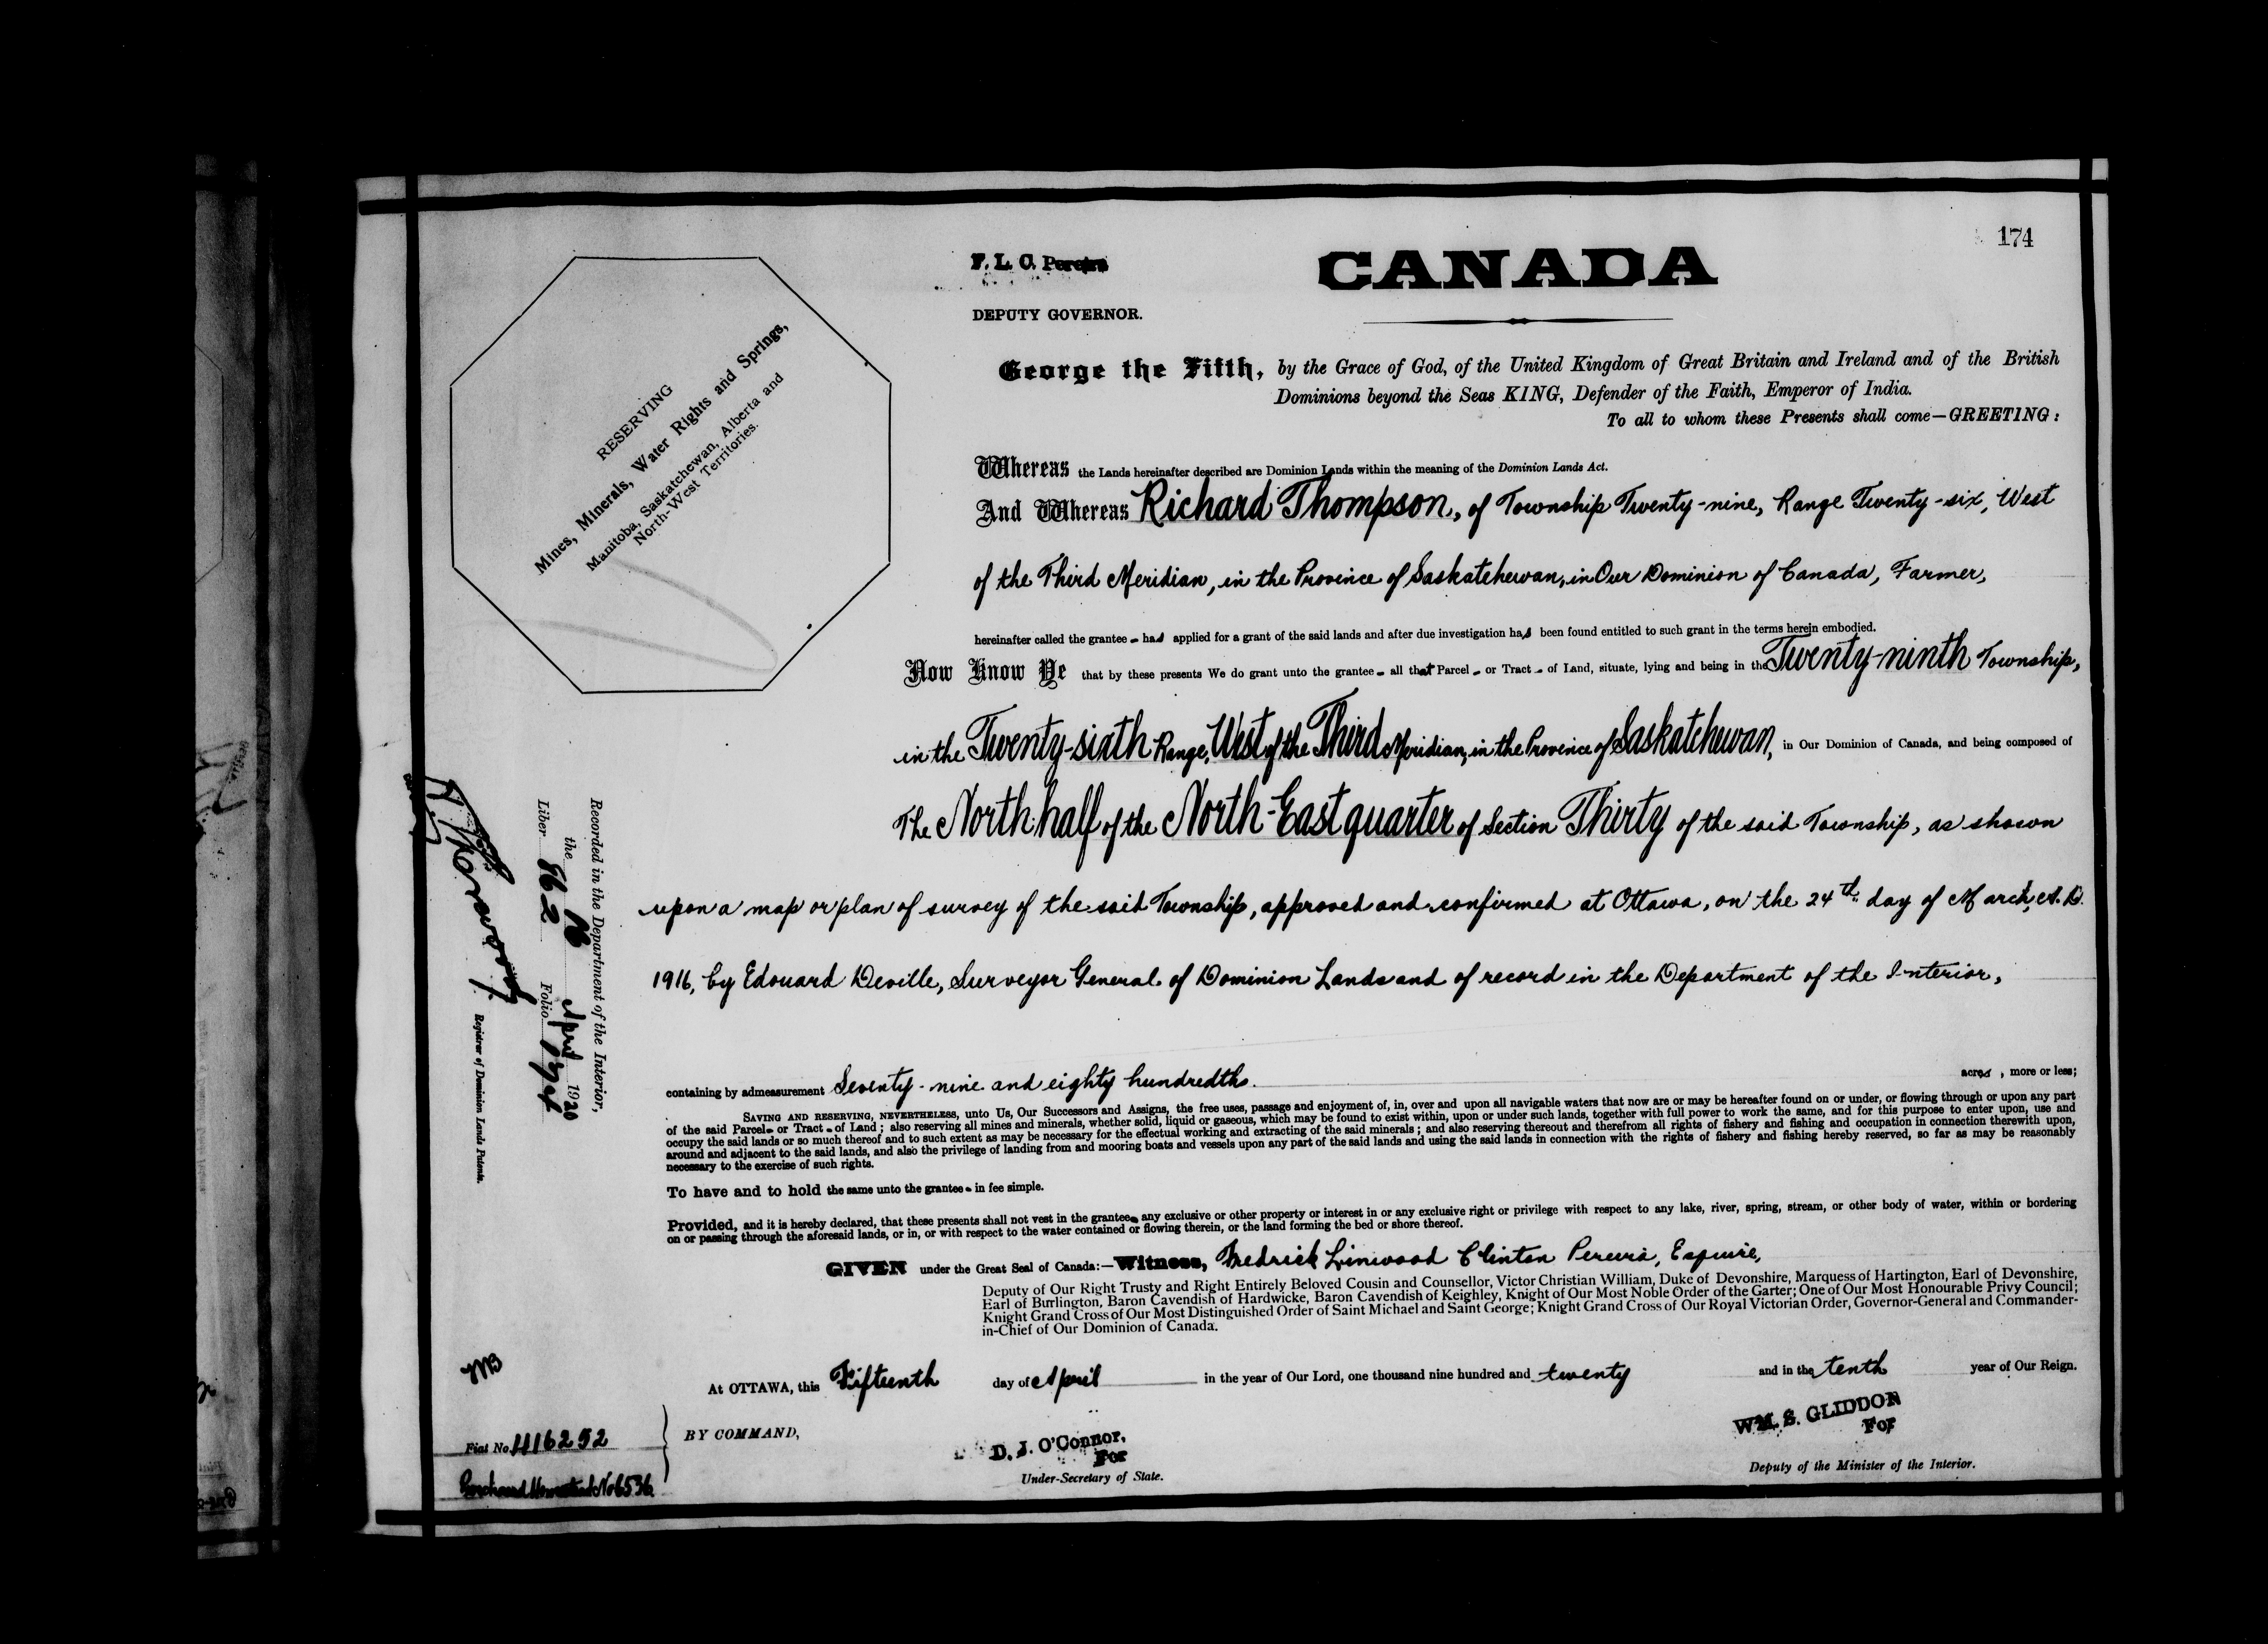 174
F. L. C. Pereira
CANADA
DEPUTY GOVERNOR.
George the Fifth, by the Grace of God, of the United Kingdom of Great Britain and Ireland and of the British
Dominions beyond the Seas KING, Defender of the Faith, Emperor of India.
To all to whom these Presents shall come—GREETING:
RESERVING
Mines, Minerals, Water Rights and Springs,
Manitoba, Saskatchewan, Alberta and
North-West Territories.
Whereas the Lands hereinafter described are Dominion Lands within the meaning of the Dominion Lands Act.
And Whereas Richard Thompson, of Township Twenty-nine, Range Twenty-six, West
of the Third Meridian, in the Province of Saskatchewan, in Our Dominion of Canada, Farmer,
hereinafter called the grantee - has applied for a grant of the said lands and after due investigation has been found entitled to such grant in the terms herein embodied.
Now Know Ye that by these presents We do grant unto the grantee - all that Parcel - or Tract - of Land, situate, lying and being in the Twenty-ninth Township,
in the Twenty-sixth Range, West of the Third Meridian, in the Province of Saskatchewan, in Our Dominion of Canada, and being composed of
The North half of the North-East quarter of Section Thirty of the said Township, as shown
upon a map or plan of survey of the said Township, approved and confirmed at Ottawa, on the 24th day of March, A.D.
1916, by Edouard Deville, Surveyor General of Dominion Lands and of record in the Department of the Interior,
Recorded in the Department of the Interior,
the 16 April 1920
Liber 862 Folio 174
Registrar of Dominion Lands Patents.
containing by admeasurement Seventy-nine and eighty hundredths acres, more or less;
SAVING AND RESERVING, NEVERTHELESS, unto Us, Our Successors and Assigns, the free uses, passage and enjoyment of, in, over and upon all navigable waters that now are or may be hereafter found on or under, or flowing through or upon any part
of the said Parcel - or Tract - of Land; also reserving all mines and minerals, whether solid, liquid or gaseous, which may be found to exist within, upon or under such lands, together with full power to work the same, and for this purpose to enter upon, use and
occupy the said lands or so much thereof and to such extent as may be necessary for the effectual working and extracting of the said minerals; and also reserving thereout and therefrom all rights of fishery and fishing and occupation in connection therewith upon,
around and adjacent to the said lands, and also the privilege of landing from and mooring boats and vessels upon any part of the said lands and using the said lands in connection with the rights of fishery and fishing hereby reserved, so far as may be reasonably
necessary to the exercise of such rights.
To have and to hold the same unto the grantee - in fee simple.
Provided, and it is hereby declared, that these presents shall not vest in the grantee - any exclusive or other property or interest in or any exclusive right or privilege with respect to any lake, river, spring, stream, or other body of water, within or bordering
on or passing through the aforesaid lands, or in, or with respect to the water contained or flowing therein, or the land forming the bed or shore thereof.
GIVEN under the Great Seal of Canada:—Witness, Fredrick Linwood Clinton Pereira, Esquire,
Deputy of Our Right Trusty and Right Entirely Beloved Cousin and Counsellor, Victor Christian William, Duke of Devonshire, Marquess of Hartington, Earl of Devonshire,
Earl of Burlington, Baron Cavendish of Hardwicke, Baron Cavendish of Keighley, Knight of Our Most Noble Order of the Garter; One of Our Most Honourable Privy Council;
Knight Grand Cross of Our Most Distinguished Order of Saint Michael and Saint George; Knight Grand Cross of Our Royal Victorian Order, Governor-General and Commander-
in-Chief of Our Dominion of Canada.
At OTTAWA, this Fifteenth day of April in the year of Our Lord, one thousand nine hundred and twenty and in the tenth year of Our Reign.
BY COMMAND,
D. J. O'Connor,
For
Under-Secretary of State.
WM. S. GLIDDON
For
Deputy of the Minister of the Interior.
Fiat No. 416252
Purchased Homestead No 6536